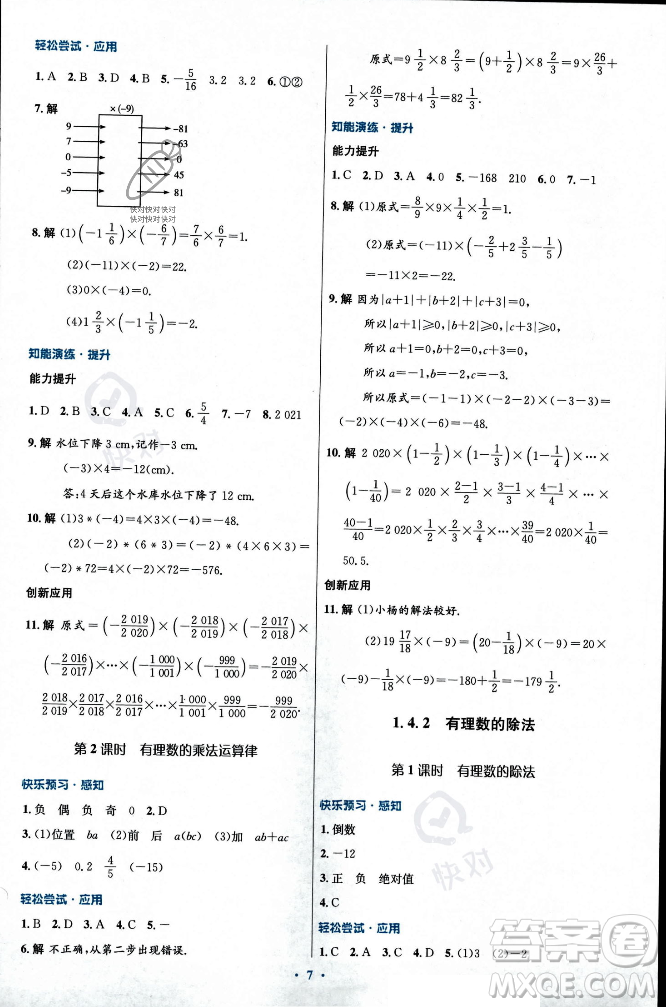 轻松尝试·应用
1. A 2. B 3. D 4. B 5. −5/16 3.2 3.2 6. ①②
7. 解 ×(−9)
9 −81
7 −63
0 0
−5 45
−9 81
快对快对快对
快对快对快对
8. 解 (1)(−1 1/6)×(−6/7)=7/6×6/7=1.
(2)(−11)×(−2)=22.
(3)0×(−4)=0.
(4)1 2/3×(−1 1/5)=−2.
知能演练·提升
能力提升
1. D 2. B 3. C 4. A 5. C 6. 5/4 7. −7 8. 2 021
9. 解 水位下降 3 cm,记作−3 cm.
(−3)×4=−12(cm).
答:4 天后这个水库水位下降了 12 cm.
10. 解 (1)3*(−4)=4×3×(−4)=−48.
(2)(−2)*(6*3)=(−2)*(4×6×3)=
(−2)*72=4×(−2)×72=−576.
创新应用
11. 解 原式=(−2 019/2 020)×(−2 018/2 019)×(−2 017/2 018)×
(−2 016/2 017)×⋯×(−1 000/1 001)×(−999/1 000)=−2 019/2 020×
2 018/2 019×2 017/2 018×2 016/2 017×⋯×1 000/1 001×999/1 000=−999/2 020.
第 2 课时 有理数的乘法运算律
快乐预习·感知
1. 负 偶 负 奇 0 2. D
3. (1)位置 ba (2)前 后 a(bc) (3)加 ab+ac
4. (−5) 0.2 4/5 (−15)
轻松尝试·应用
1. B 2. D 3. A 4. C 5. −
6. 解 不正确,从第二步出现错误.
原式=9 1/2×8 2/3=(9+1/2)×26/3=9×26/3+
1/2×26/3=78+4 1/3=82 1/3.
知能演练·提升
能力提升
1. C 2. D 3. A 4. 0 5. −168 210 6. 0 7. −1
8. 解 (1)原式=8/9×9×1/4×1/2=1.
(2)原式=(−11)×(−2/5+2 2/5−1/5)
=−11×2=−22.
9. 解 因为|a+1|+|b+2|+|c+3|=0,
所以|a+1|≥0,|b+2|≥0,|c+3|≥0,
所以 a+1=0,b+2=0,c+3=0,
所以 a=−1,b=−2,c=−3.
所以原式=(−1−1)×(−2−2)×(−3−3)=
(−2)×(−4)×(−6)=−48.
10. 解 2 020×(1−1/2)×(1−1/3)×(1−1/4)×⋯×
(1−1/40)=2 020×(2−1)/2×(3−1)/3×(4−1)/4×⋯×
(40−1)/40=2 020×1/2×2/3×3/4×⋯×39/40=2 020×1/40=
50.5.
创新应用
11. 解 (1)小杨的解法较好.
(2)19 17/18×(−9)=(20−1/18)×(−9)=20×
(−9)−1/18×(−9)=−180+1/2=−179 1/2.
1.4.2 有理数的除法
第 1 课时 有理数的除法
快乐预习·感知
1. 倒数
2. −12
3. 正 负 绝对值
4. C
轻松尝试·应用
1. C 2. A 3. D 4. D 5. (1)3 (2)−2
· 7 ·
快对
快对
答案圈
MXQE.COM